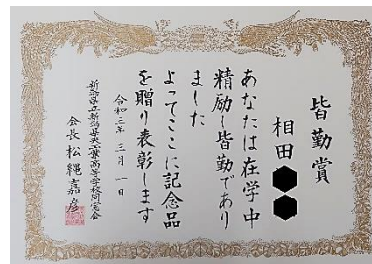 皆勤賞
相田
あなたは在学中
精励し皆勤であり
ました
よってここに記念品
を贈り表彰します
令和三年三月一日
新潟県立新潟県央工業高等学校同窓会
会長 松縄嘉彦